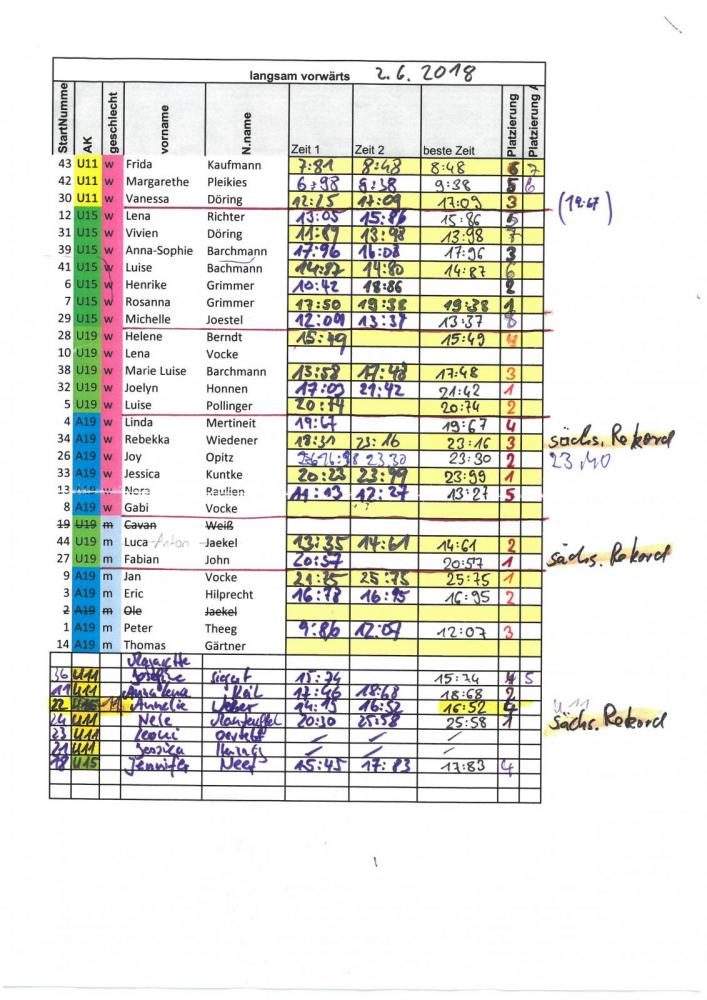 langsam vorwärts 2.6.2018
StartNumme AK geschlecht vorname N.name Zeit 1 Zeit 2 beste Zeit Platzierung Platzierung A
43 U11 w Frida Kaufmann 7:81 8:48 8:48 6 7
42 U11 w Margarethe Pleikies 6:98 9:38 9:38 5 6
30 U11 w Vanessa Döring 12:25 17:09 17:09 3 (19:67)
12 U15 w Lena Richter 13:05 15:86 15:86 5
31 U15 w Vivien Döring 11:89 13:98 13:98 7
39 U15 w Anna-Sophie Barchmann 17:96 16:08 17:96 3
41 U15 w Luise Bachmann 14:87 14:80 14:87 6
6 U15 w Henrike Grimmer 10:42 18:86 2
7 U15 w Rosanna Grimmer 17:50 19:38 19:38 1
29 U15 w Michelle Joestel 12:09 13:37 13:37 8
28 U19 w Helene Berndt 15:49 15:49 4
10 U19 w Lena Vocke
38 U19 w Marie Luise Barchmann 13:58 17:48 17:48 3
32 U19 w Joelyn Honnen 17:03 21:42 21:42 1
5 U19 w Luise Pollinger 20:74 20:74 2
4 A19 w Linda Mertineit 19:67 19:67 4
34 A19 w Rebekka Wiedener 18:31 23:16 23:16 3 sächs. Rekord
26 A19 w Joy Opitz 23.30 23:30 2 23,40
33 A19 w Jessica Kuntke 20:23 23:99 23:99 1
13 A19 w Nora Raulien 11:13 12:27 13:27 5
8 A19 w Gabi Vocke
19 U19 m Cavan Weiß
44 U19 m Luca Anton Jaekel 13:35 14:61 14:61 2
27 U19 m Fabian John 20:57 20:57 1 sächs. Rekord
9 A19 m Jan Vocke 21:75 25:75 25:75 1
3 A19 m Eric Hilprecht 16:78 16:95 16:95 2
2 A19 m Ole Jaekel
1 A19 m Peter Theeg 9:86 12:07 12:07 3
14 A19 m Thomas Gärtner
36 U11 15:74 15:74 4 5
11 U11 Annalena 17:46 18:68 18:68 2
22 U15 Annelie Weber 14:15 16:52 16:52 4 U11
24 U11 Nele Manteuffel 20:30 25:58 25:58 1 sächs. Rekord
23 U11 Leoni
21 U11 Jessica
18 U15 Jennifer Neef 15:45 17:83 17:83 4